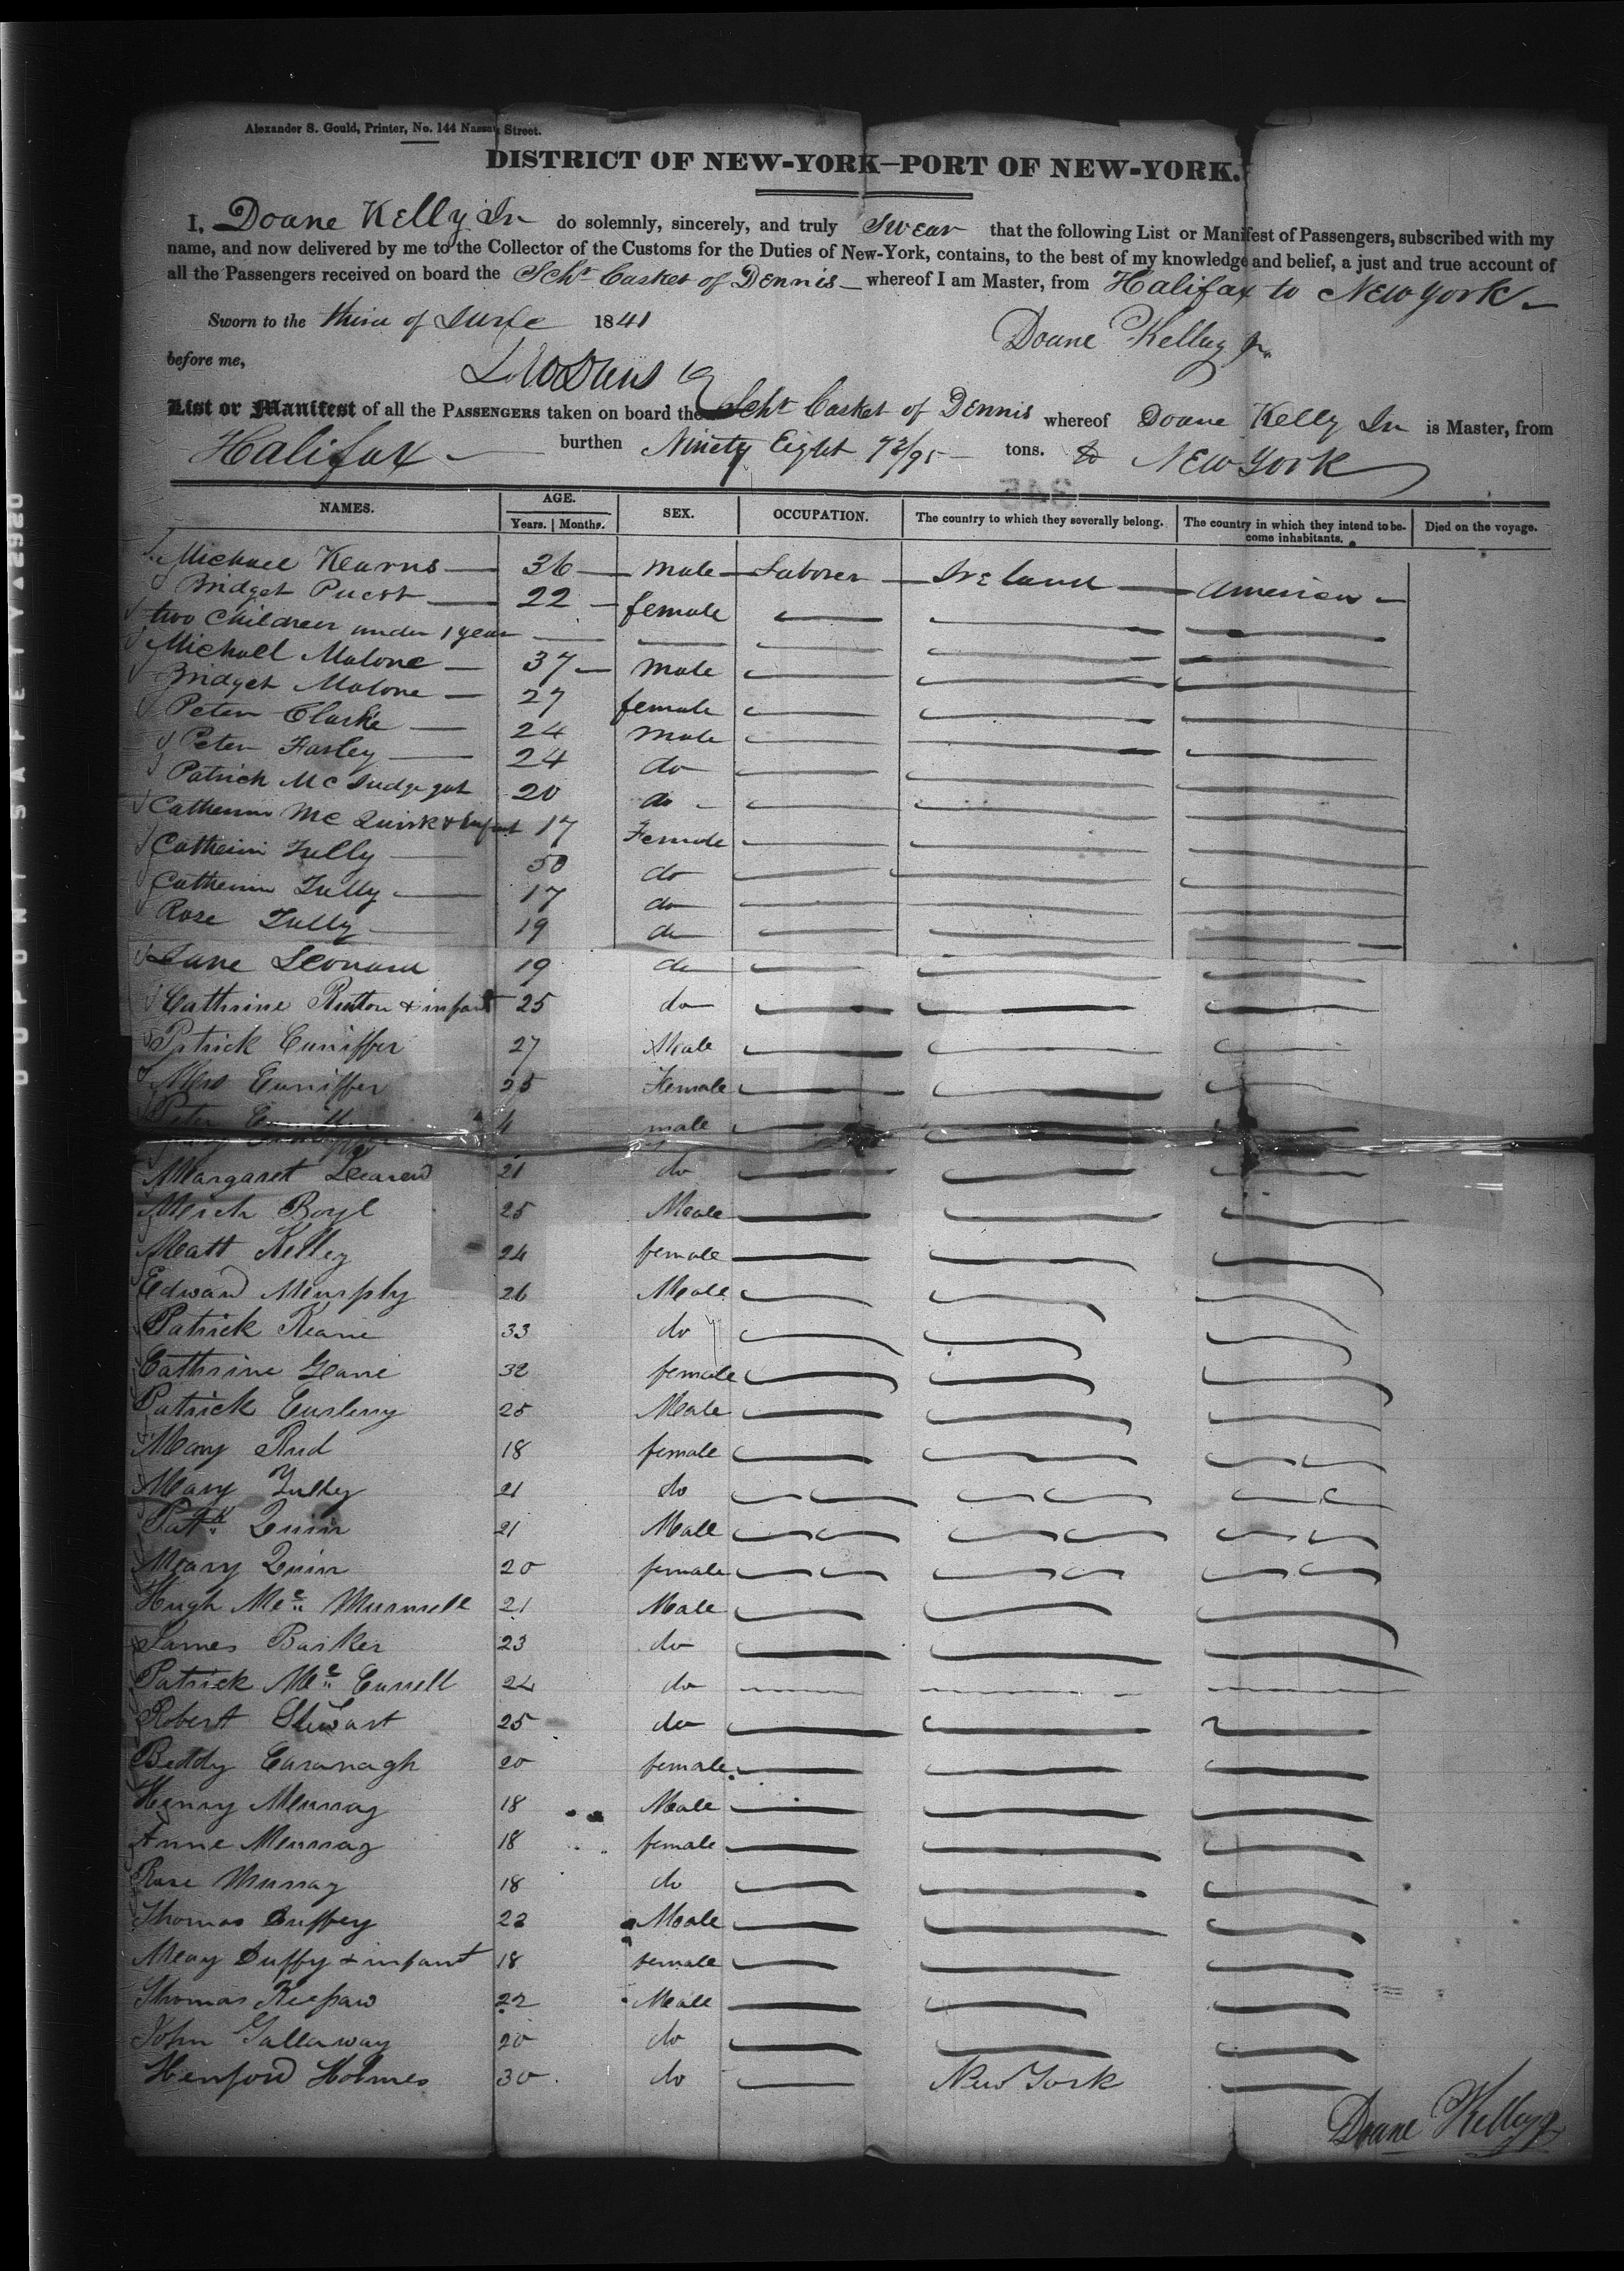 Alexander S. Gould, Printer, No. 144 Nassau Street.
DISTRICT OF NEW-YORK—PORT OF NEW-YORK.
I, Doane Kelly Jr do solemnly, sincerely, and truly Swear that the following List or Manifest of Passengers, subscribed with my
name, and now delivered by me to the Collector of the Customs for the Duties of New-York, contains, to the best of my knowledge and belief, a just and true account of
all the Passengers received on board the Schr Casket of Dennis — whereof I am Master, from Halifax to New York —
Sworn to the third of June 1841
Doane Kelley Jr.
before me,
List or Manifest of all the PASSENGERS taken on board the Schr Casket of Dennis whereof Doane Kelly Jr is Master, from
Halifax — burthen Ninety Eight 93/95 — tons. to New York
NAMES. AGE. Years. Months. SEX. OCCUPATION. The country to which they severally belong. The country in which they intend to become inhabitants. Died on the voyage.
Michael Kearns — 36 — Male — Laborer — Ireland — American —
Bridget — 22 — female
two Children under 1 year
Michael Malone — 37 — Male
Bridget Malone — 27 female
Peter Clarke — 24 Male
Peter Farley — 24 do
Patrick Mc 20 do
Catherine Mc Quirk & Infant 17 Female
Catherine Tully — 50 do
Catherine Tully — 17 do
Rose Tully — 19 do
Jane Leonard 19 do
Cathrine & infant 25 do
Patrick Cuniffer 27 Male
Mrs Cuniffer 25 Female
Peter 4 male
Margaret 21 do
Mich Boyl 25 Male
Matt Kelley 24 female
Edward Murphy 26 Male
Patrick Keane 33 do
Cathrine 32 female
Patrick 25 Male
Mary 18 female
Mary Tulley 21 do
Patk Quin 21 Male
Mary Quin 20 female
Hugh Mc 21 Male
James Barker 23 do
Patrick Mc 24 do
Robert Stewart 25 do
Biddy Cavanagh 20 female
Henry Murray 18 Male
Anne Murray 18 female
Rose Murray 18 do
Thomas Duffey 22 Male
Mary Duffy & infant 18 female
Thomas 22 Male
John Gallaway 20 do
Henford Holmes 30 do New York
Doane Kelley Jr